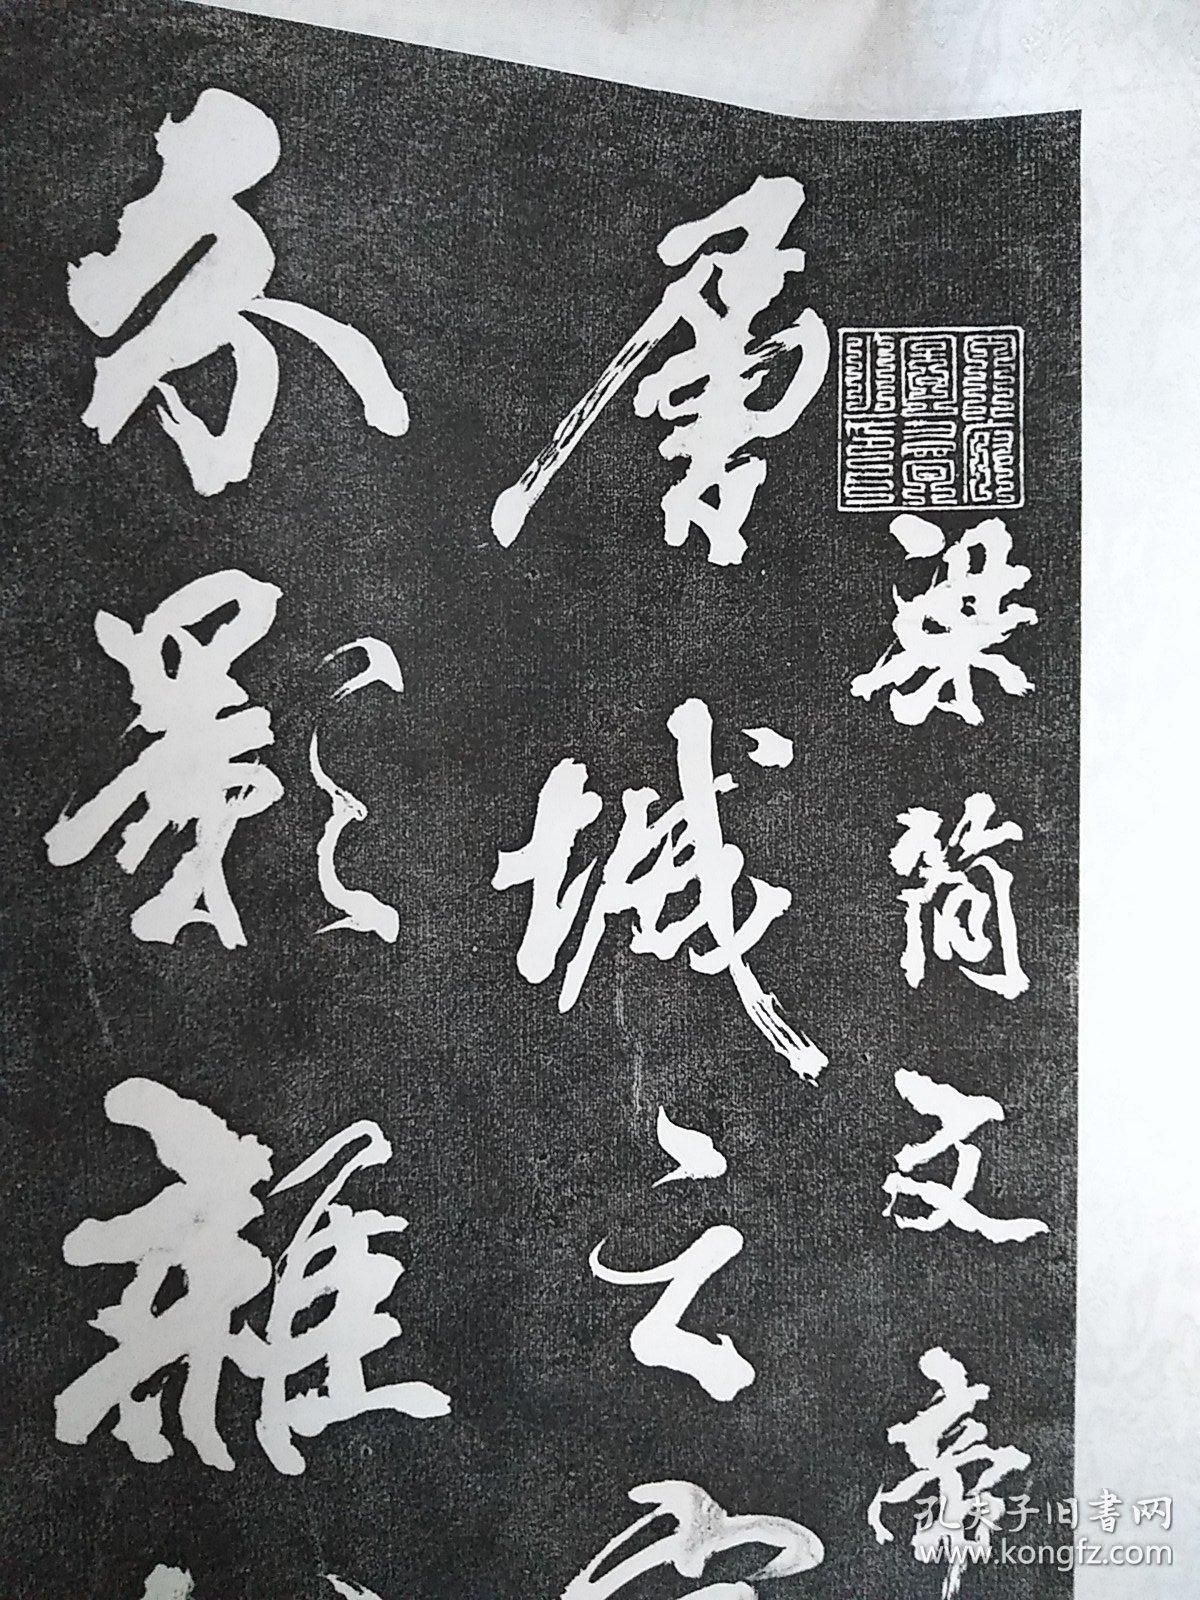 梁簡文帝
層城之
分影雜
孔夫子旧书网
www.kongfz.com